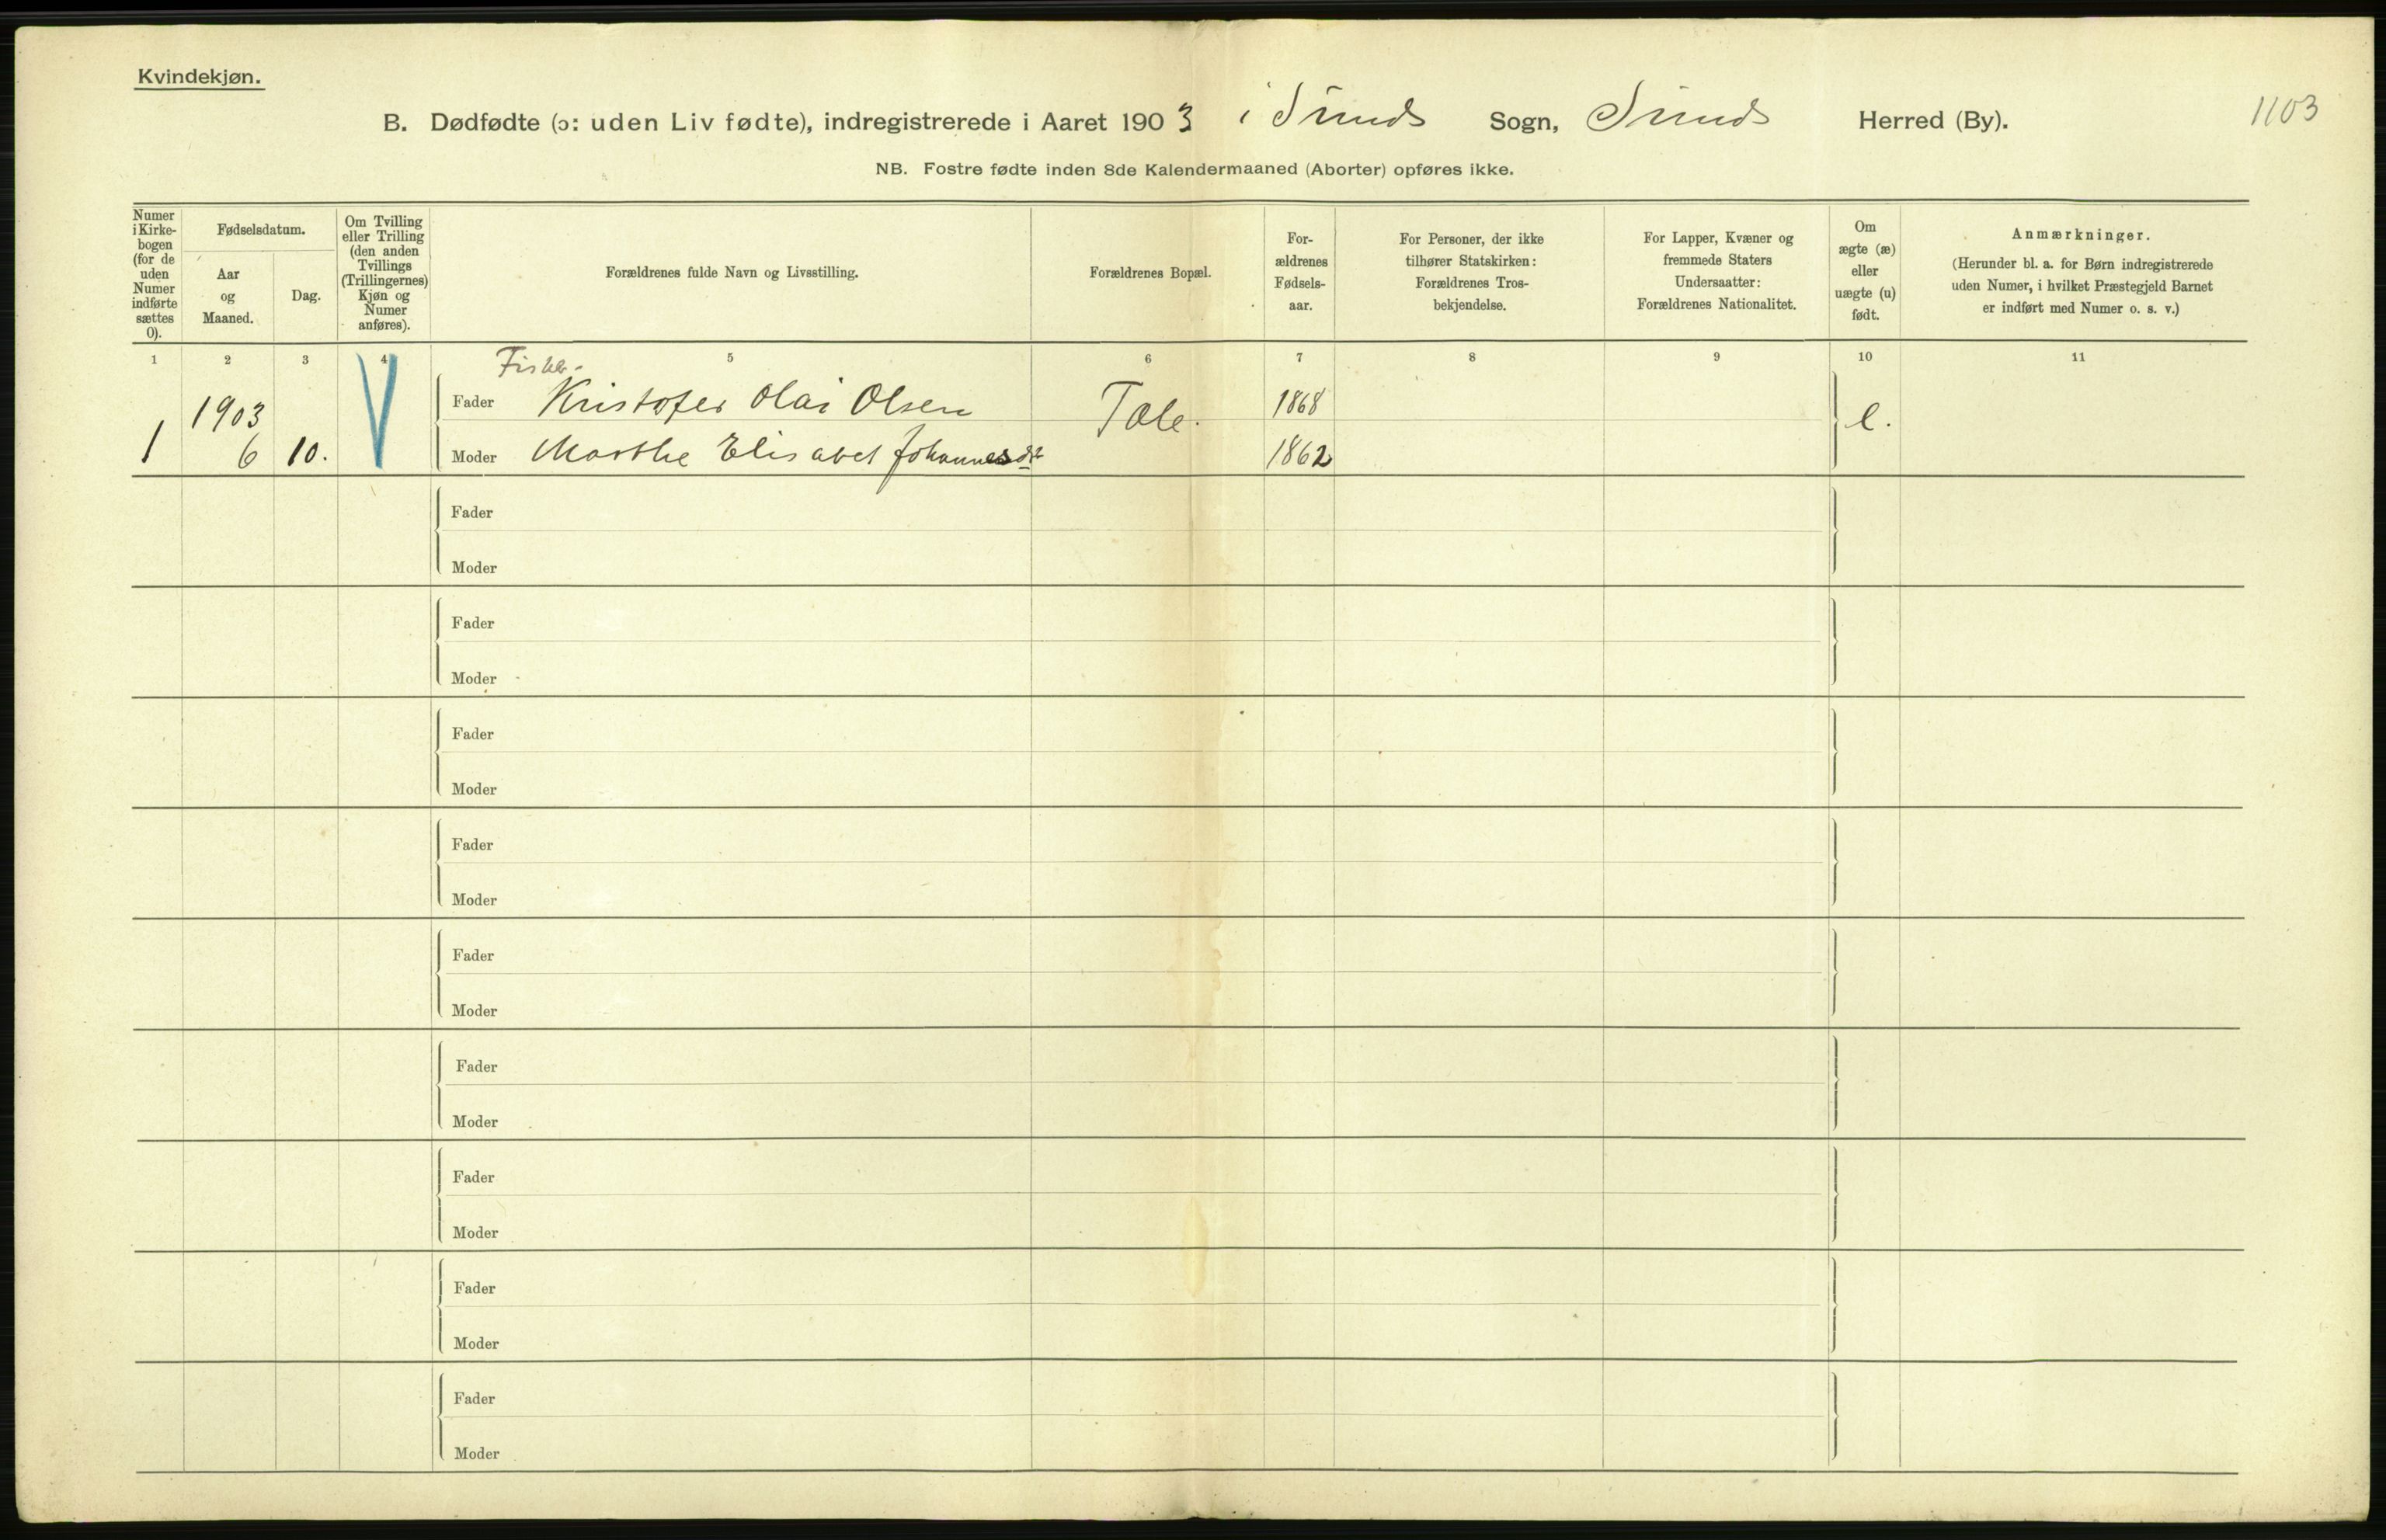 Kvindekjøn.
B. Dødfødte (ɔ: uden Liv fødte), indregistrerede i Aaret 1903 i Sunds Sogn, Sunds Herred (By).
1103
NB. Fostre fødte inden 8de Kalendermaaned (Aborter) opføres ikke.
Numer
i Kirke-
bogen
(for de
uden
Numer
indførte
sættes
0).
Fødselsdatum.
Aar
og
Maaned.
Dag.
Om Tvilling
eller Trilling
(den anden
Tvillings
(Trillingernes)
Kjøn og
Numer
anføres).
Forældrenes fulde Navn og Livsstilling.
Forældrenes Bopæl.
For-
ældrenes
Fødsels-
aar.
For Personer, der ikke
tilhører Statskirken:
Forældrenes Tros-
bekjendelse.
For Lapper, Kvæner og
fremmede Staters
Undersaatter:
Forældrenes Nationalitet.
Om
ægte (æ)
eller
uægte (u)
født.
Anmærkninger.
(Herunder bl. a. for Børn indregistrerede
uden Numer, i hvilket Præstegjeld Barnet
er indført med Numer o. s. v.)
1 2 3 4 5 6 7 8 9 10 11
Fisker.
Fader Kristofer Olai Olsen 1868
1903 Tale. e.
1 6 10. Moder Marthe Elisabet Johannesdt 1862
Fader
Moder
Fader
Moder
Fader
Moder
Fader
Moder
Fader
Moder
Fader
Moder
Fader
Moder
Fader
Moder
Fader
Moder